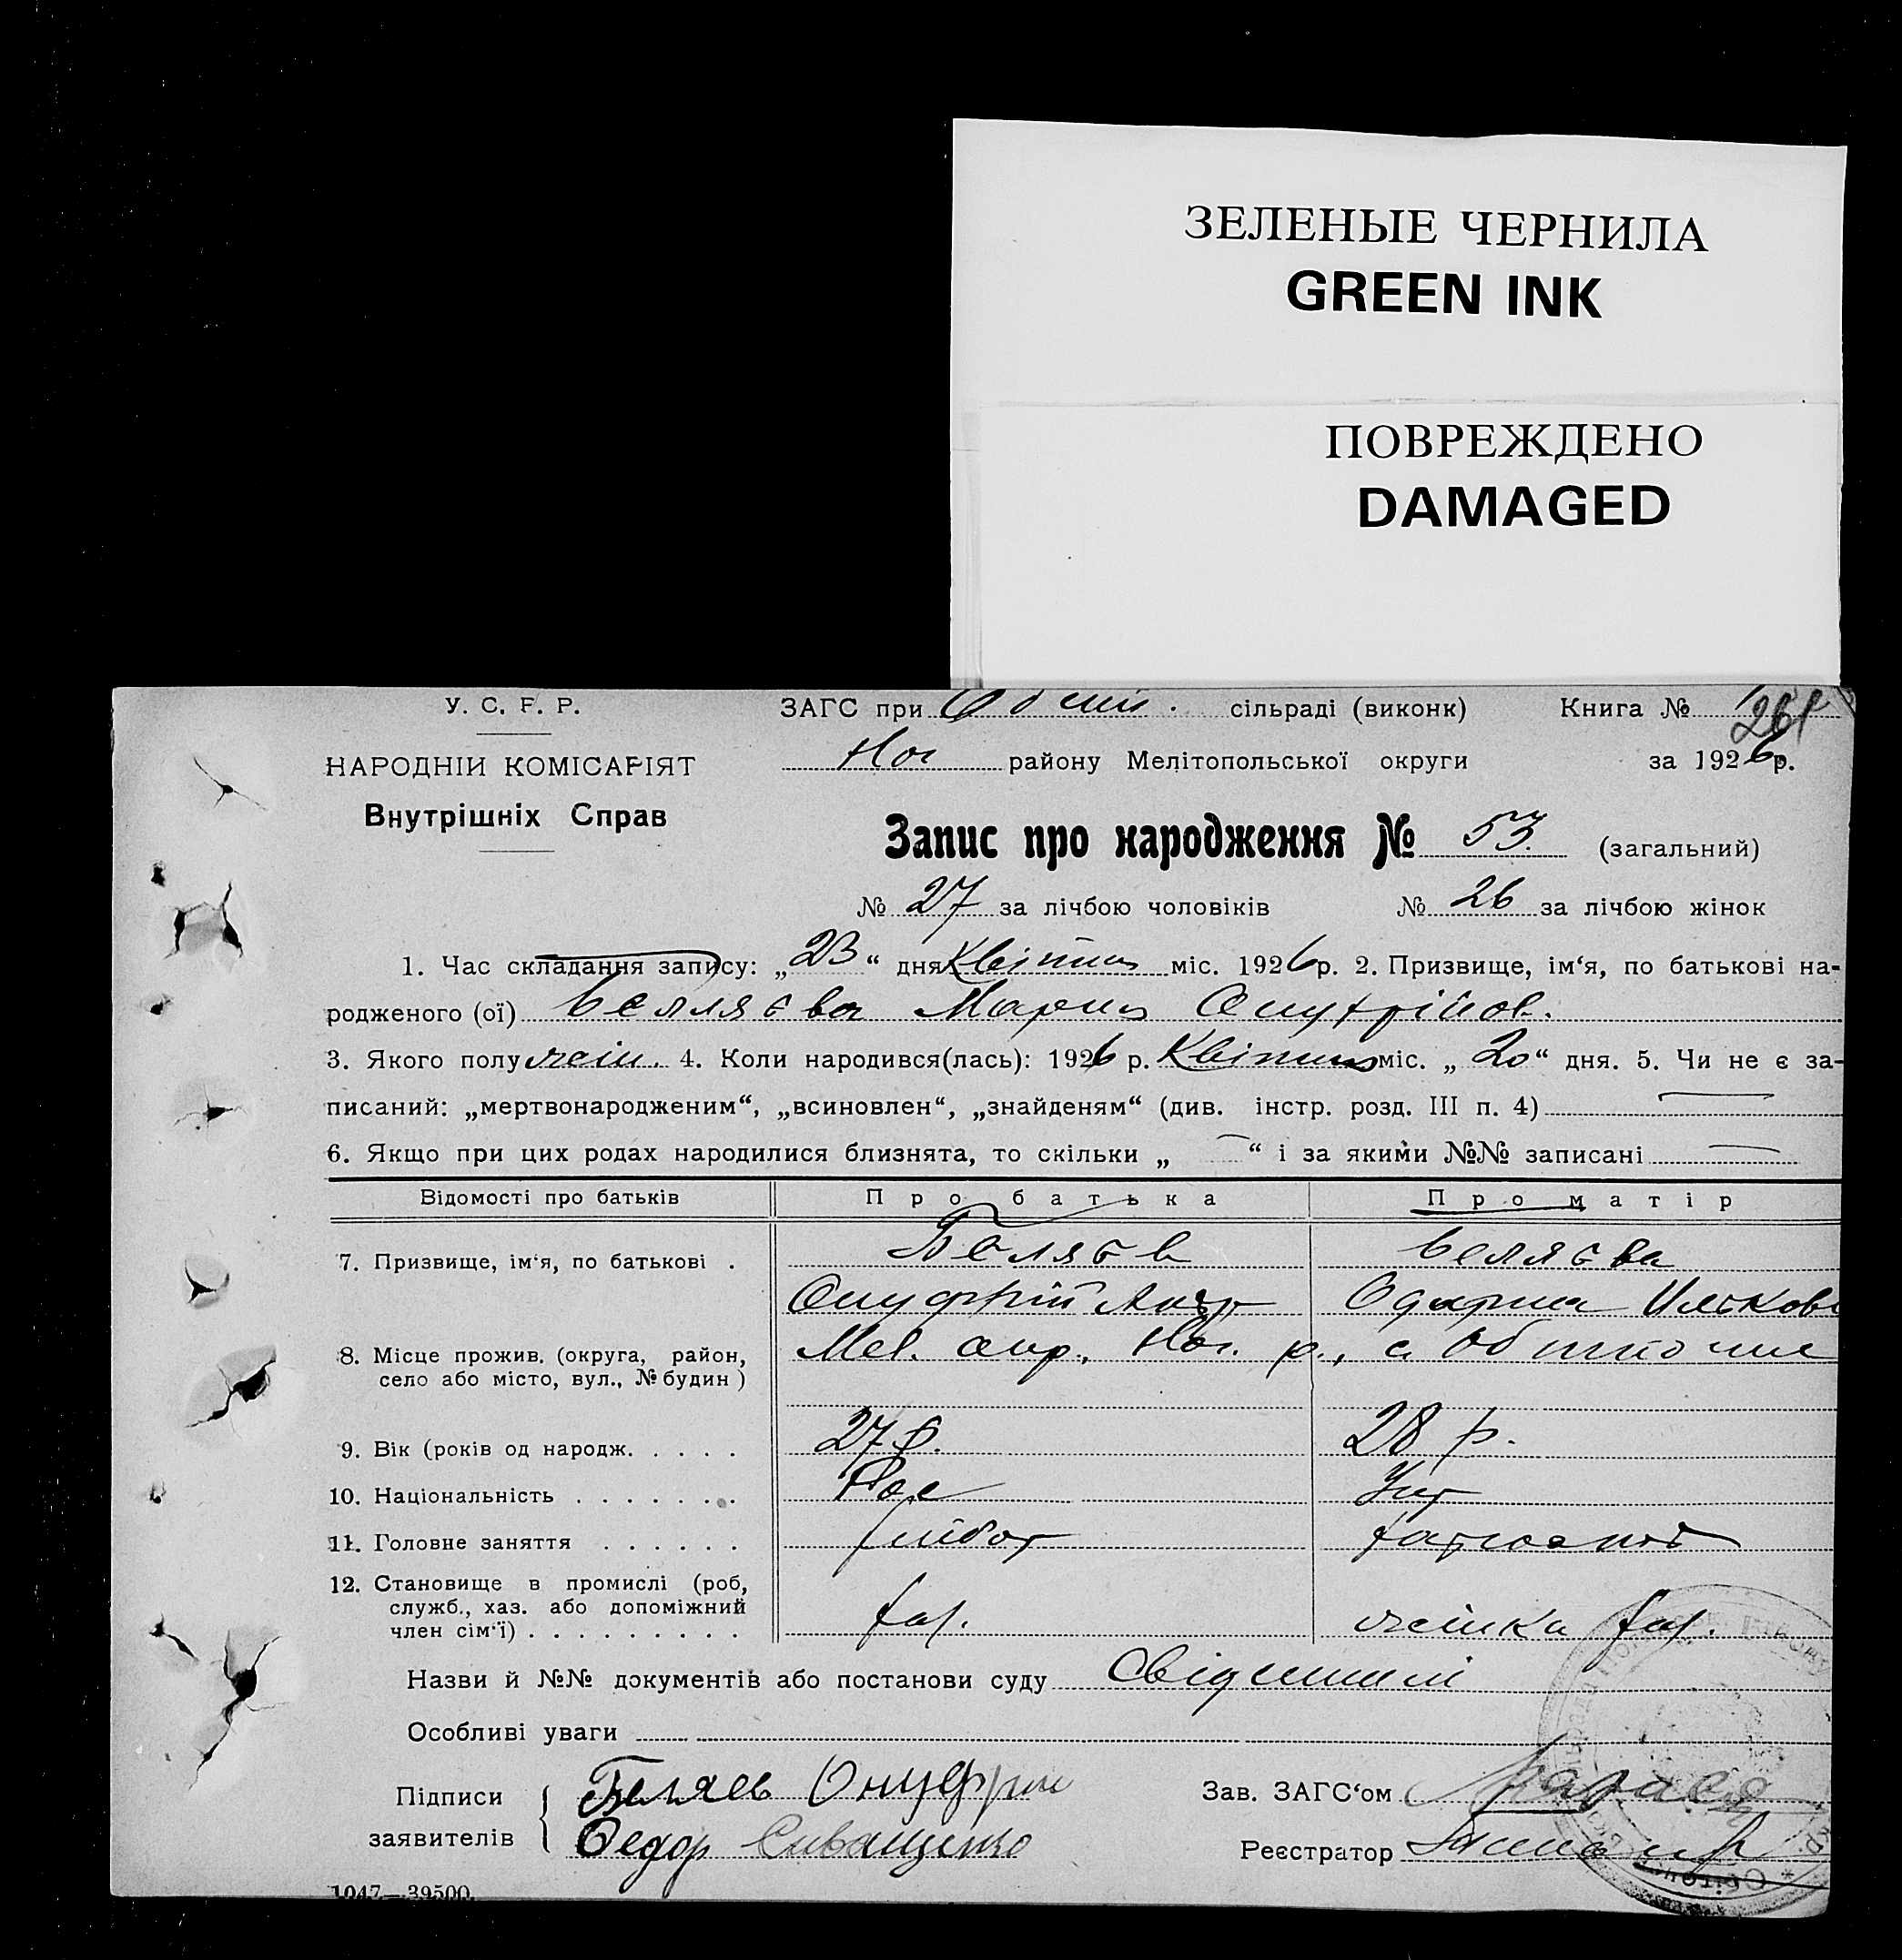 ЗЕЛЕНЫЕ ЧЕРНИЛА
GREEN INK
ПОВРЕЖДЕНО
DAMAGED
У. С. Р. Р. ЗАГС при сільраді (виконк) Книга № 261
Ног району Мелітопольської округи за 1926 р.
НАРОДНІЙ КОМІСАРІЯТ
Внутрішніх Справ
Запис про народження № 53. (загальний)
№ 27 за лічбою чоловіків № 26 за лічбою жінок
1. Час складання запису: „23“ дня Квітня міс. 1926 р. 2. Призвище, ім‘я, по батькові на-
родженого (ої) Беляєва Мария Онуфрійов.
3. Якого полу жін. 4. Коли народився(лась): 1926 р. Квітня міс. „20“ дня. 5. Чи не є за-
писаний: „мертвонародженим“, „всиновлен“, „знайденям“ (див. інстр. розд. III п. 4) —
6. Якщо при цих родах народилися близнята, то скільки „—“ і за якими №№ записані —
Відомості про батьків Про батька Про матір
7. Призвище, ім‘я, по батькові . Беляєв Беляєва
Онуфрій Одарка
8. Місце прожив. (округа, район, Мел. окр., Ног. р., с.
село або місто, вул., № будин )
9. Вік (років од народж. . . . . 27 р. 28 р.
10. Національність . . . . . . . Рос Укр
11. Головне заняття . . . . . .
12. Становище в промислі (роб,
служб., хаз. або допоміжний
член сім‘ї) . . . . . . . . . хаз. жінка хаз.
Назви й №№ документів або постанови суду
Особливі уваги
Підписи Беляев Онуфри Зав. ЗАГС‘ом
заявителів Федор Реєстратор
1047—39500.